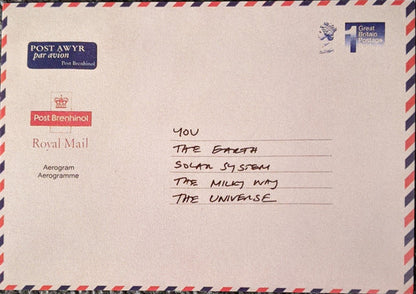 POST AWYR
par avion
Post Brenhinol
1
Great
Britain
Postage
Post Brenhinol
Royal Mail
Aerogram
Aerogramme
YOU
THE EARTH
SOLAR SYSTEM
THE MILKY WAY
THE UNIVERSE